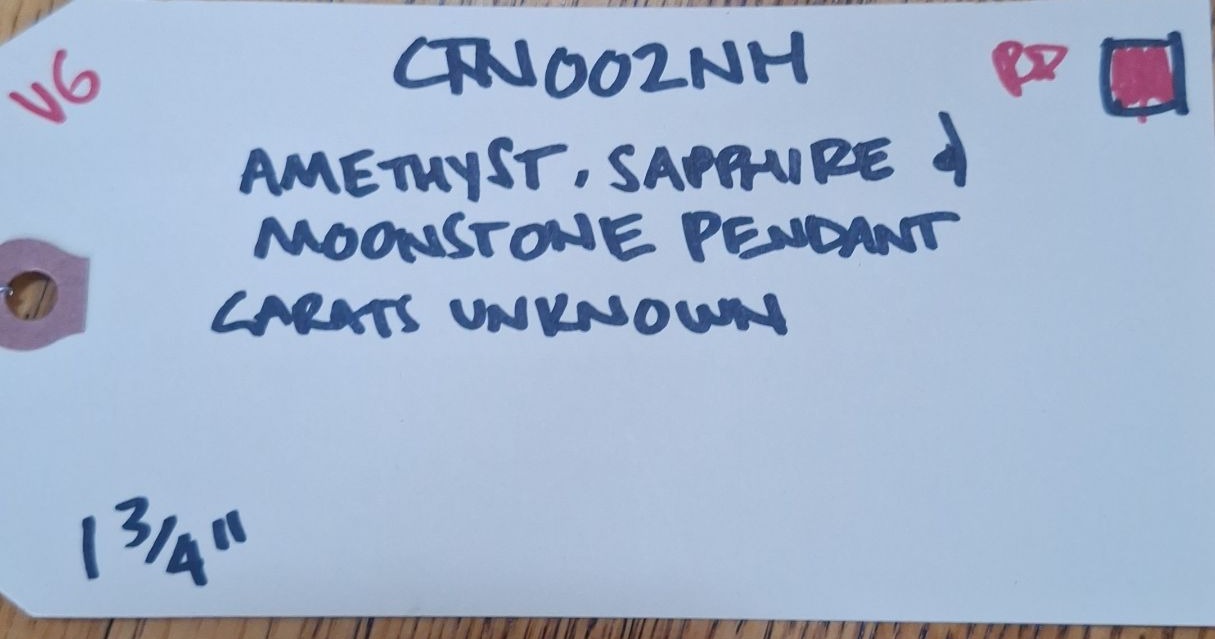 V6
CTN002NH
AMETHYST, SAPPHIRE &
MOONSTONE PENDANT
CARATS UNKNOWN
1 3/4"